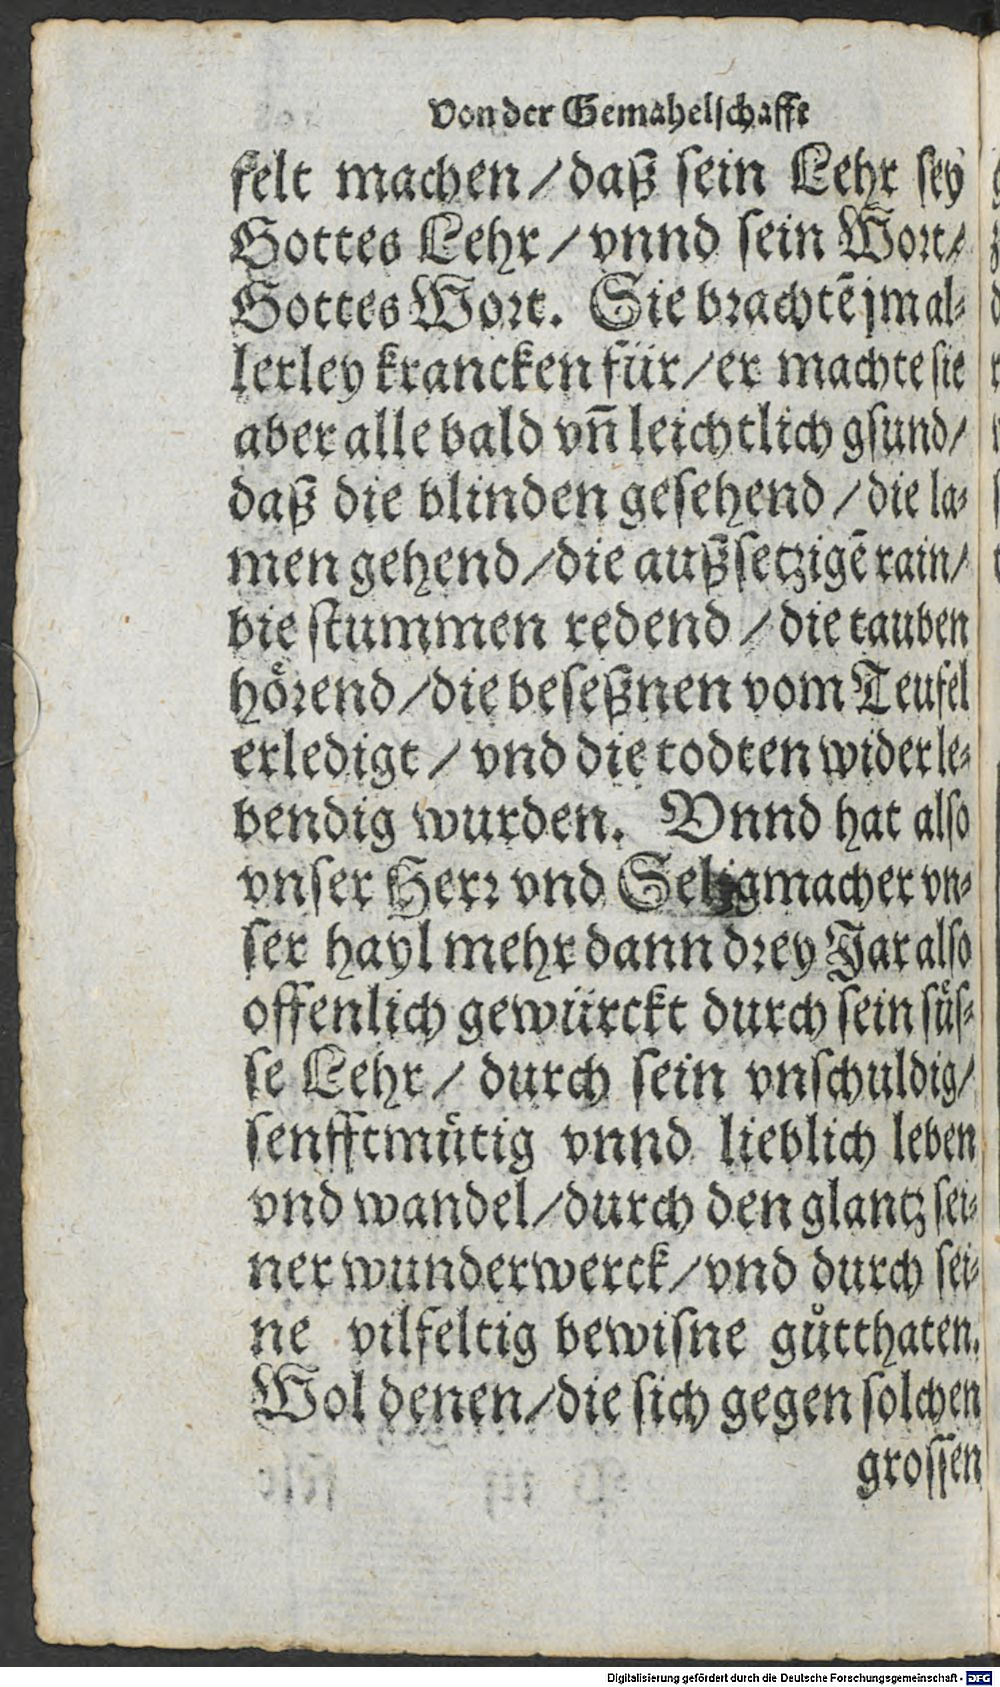 Von der Gemahelschafft
felt machen / daß sein Lehr sey
Gottes Lehr / vnnd sein Wort /
Gottes Wort. Sie brachtẽ jm al-
lerley krancken für / er machte sie
aber alle bald vñ leichtlich gsund /
daß die blinden gesehend / die la-
men gehend / die außsetzigẽ rain /
die stummen redend / die tauben
hoͤrend / die beseßnen vom Teufel
erledigt / vnd die todten wider le-
bendig wurden. Vnnd hat also
vnser Herr vnd Seligmacher vn-
ser hayl mehr dann drey Jar also
offenlich gewürckt durch sein suͤs-
se Lehr / durch sein vnschuldig /
senfftmuͤtig vnnd lieblich leben
vnd wandel / durch den glantz sei-
ner wunderwerck / vnd durch sei-
ne vilfeltig bewisne guͦtthaten.
Wol denen / die sich gegen solchen
grossen
Digitalisierung gefördert durch die Deutsche Forschungsgemeinschaft - DFG